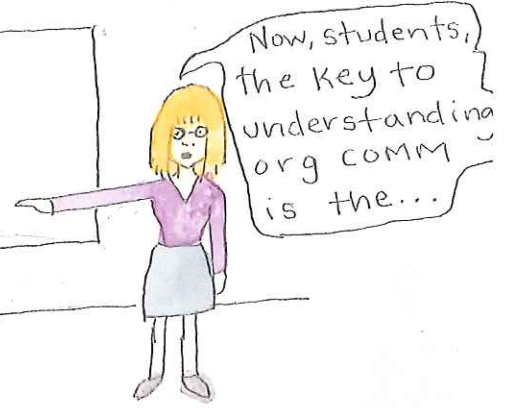 Now, students,
the key to
understanding
org comm
is the...